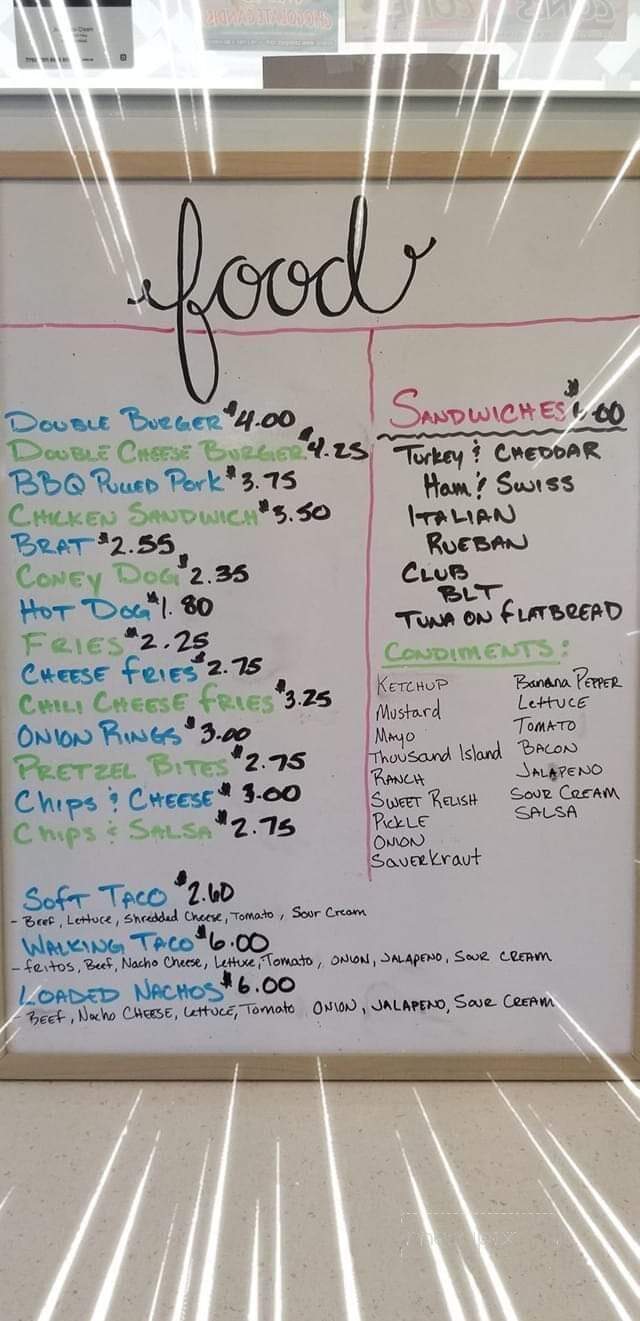 food
DOUBLE BURGER $4.00
DOUBLE CHEESE BURGER $4.25
BBQ PULLED PORK $3.75
CHICKEN SANDWICH $3.50
BRAT $2.55
CONEY DOG $2.35
HOT DOG $1.80
FRIES $2.25
CHEESE FRIES $2.75
CHILI CHEESE FRIES $3.25
ONION RINGS $3.00
PRETZEL BITES $2.75
Chips & CHEESE $3.00
Chips & SALSA $2.75
SANDWICHES $6.00
Turkey & CHEDDAR
Ham & SWISS
ITALIAN
RUEBAN
CLUB
BLT
TUNA ON FLATBREAD
CONDIMENTS:
KETCHUP
Mustard
Mayo
Thousand Island
RANCH
SWEET RELISH
PICKLE
ONION
Sauerkraut
Banana PEPPER
LETTUCE
TOMATO
BACON
JALAPENO
SOUR CREAM
SALSA
SOFT TACO $2.60
- Beef, Lettuce, Shredded Cheese, Tomato, Sour Cream
WALKING TACO $6.00
- fritos, Beef, Nacho Cheese, Lettuce, Tomato, ONION, JALAPENO, SOUR CREAM
LOADED NACHOS $6.00
- BEEF, Nacho CHEESE, Lettuce, Tomato ONION, JALAPENO, SOUR CREAM